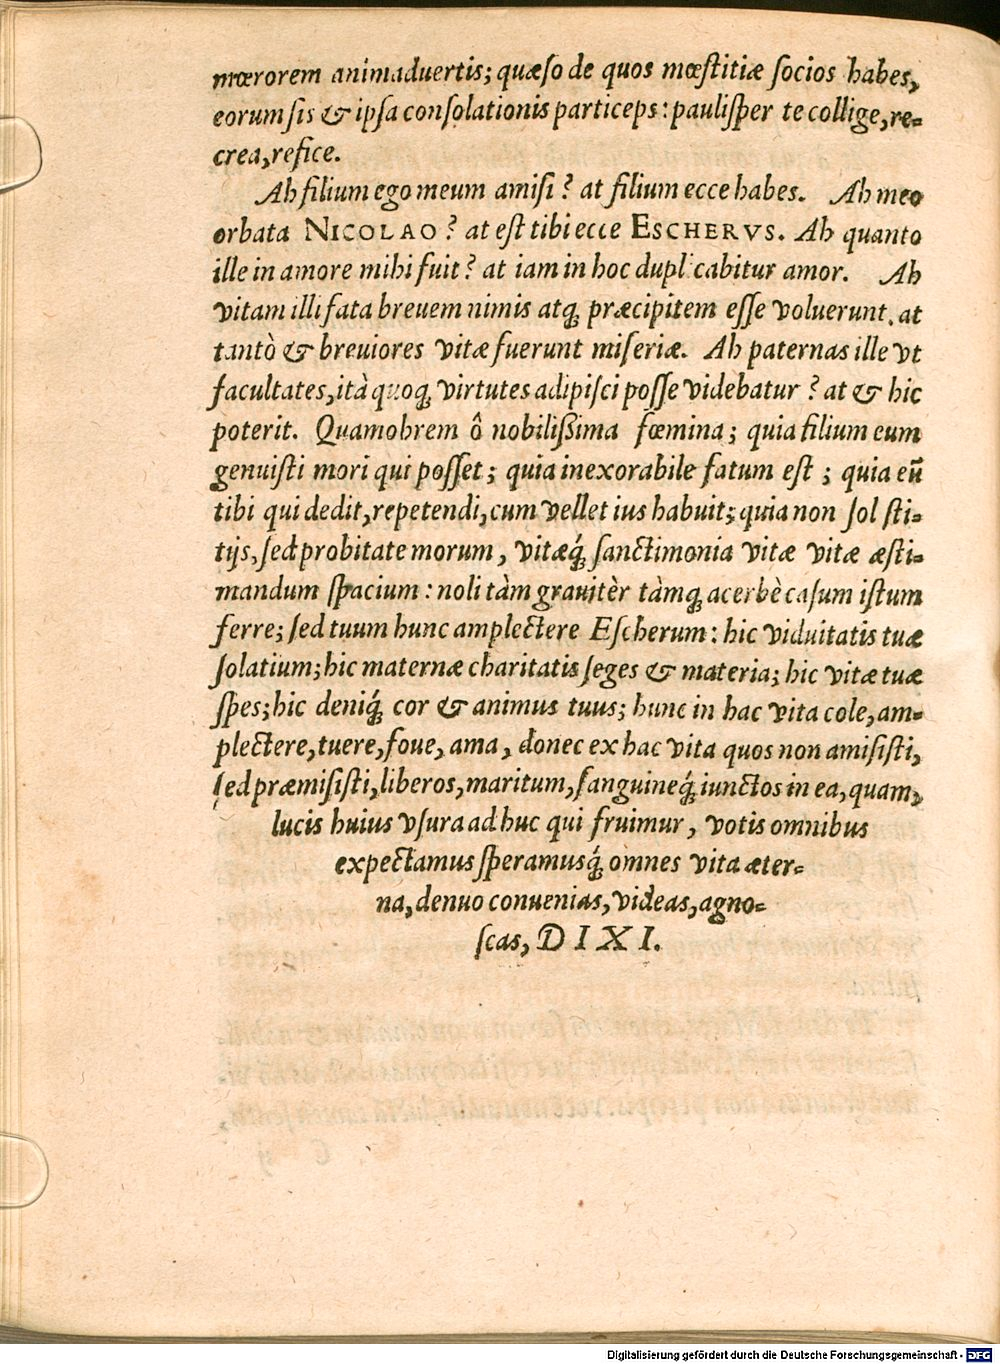 mœrorem animaduertis; quæſo de quos mœſtitiæ ſocios habes,
eorum ſis & ipſa conſolationis particeps: pauliſper te collige, re-
crea, refice.
Ah filium ego meum amiſi? at filium ecce habes. Ah meo
orbata NICOLAO? at eſt tibi ecce ESCHERVS. Ah quanto
ille in amore mihi fuit? at iam in hoc duplicabitur amor. Ah
vitam illi fata breuem nimis atq́ præcipitem eſſe voluerunt. at
tantò & breuiores vitæ fuerunt miſeriæ. Ah paternas ille vt
facultates, ità quoq́ virtutes adipiſci poſſe videbatur? at & hic
poterit. Quamobrem ô nobilißima fœmina; quia filium eum
genuiſti mori qui poſſet; quia inexorabile fatum eſt; quia eũ
tibi qui dedit, repetendi, cum vellet ius habuit; quia non ſol ſti-
tijs, ſed probitate morum, vitæq́ ſanctimonia vitæ vitæ æſti-
mandum ſpacium: noli tàm grauitèr tàmq́ acerbè caſum iſtum
ferre; ſed tuum hunc amplectere Eſcherum: hic viduitatis tuæ
ſolatium; hic maternæ charitatis ſeges & materia; hic vitæ tuæ
ſpes; hic deniq́ cor & animus tuus; hunc in hac vita cole, am-
plectere, tuere, foue, ama, donec ex hac vita quos non amiſiſti,
ſed præmiſiſti, liberos, maritum, ſanguineq́ iunctos in ea, quam,
lucis huius vſura adhuc qui fruimur, votis omnibus
expectamus ſperamusq́ omnes vita æter-
na, denuo conuenias, videas, agno-
ſcas, DIXI.
Digitalisierung gefördert durch die Deutsche Forschungsgemeinschaft - DFG